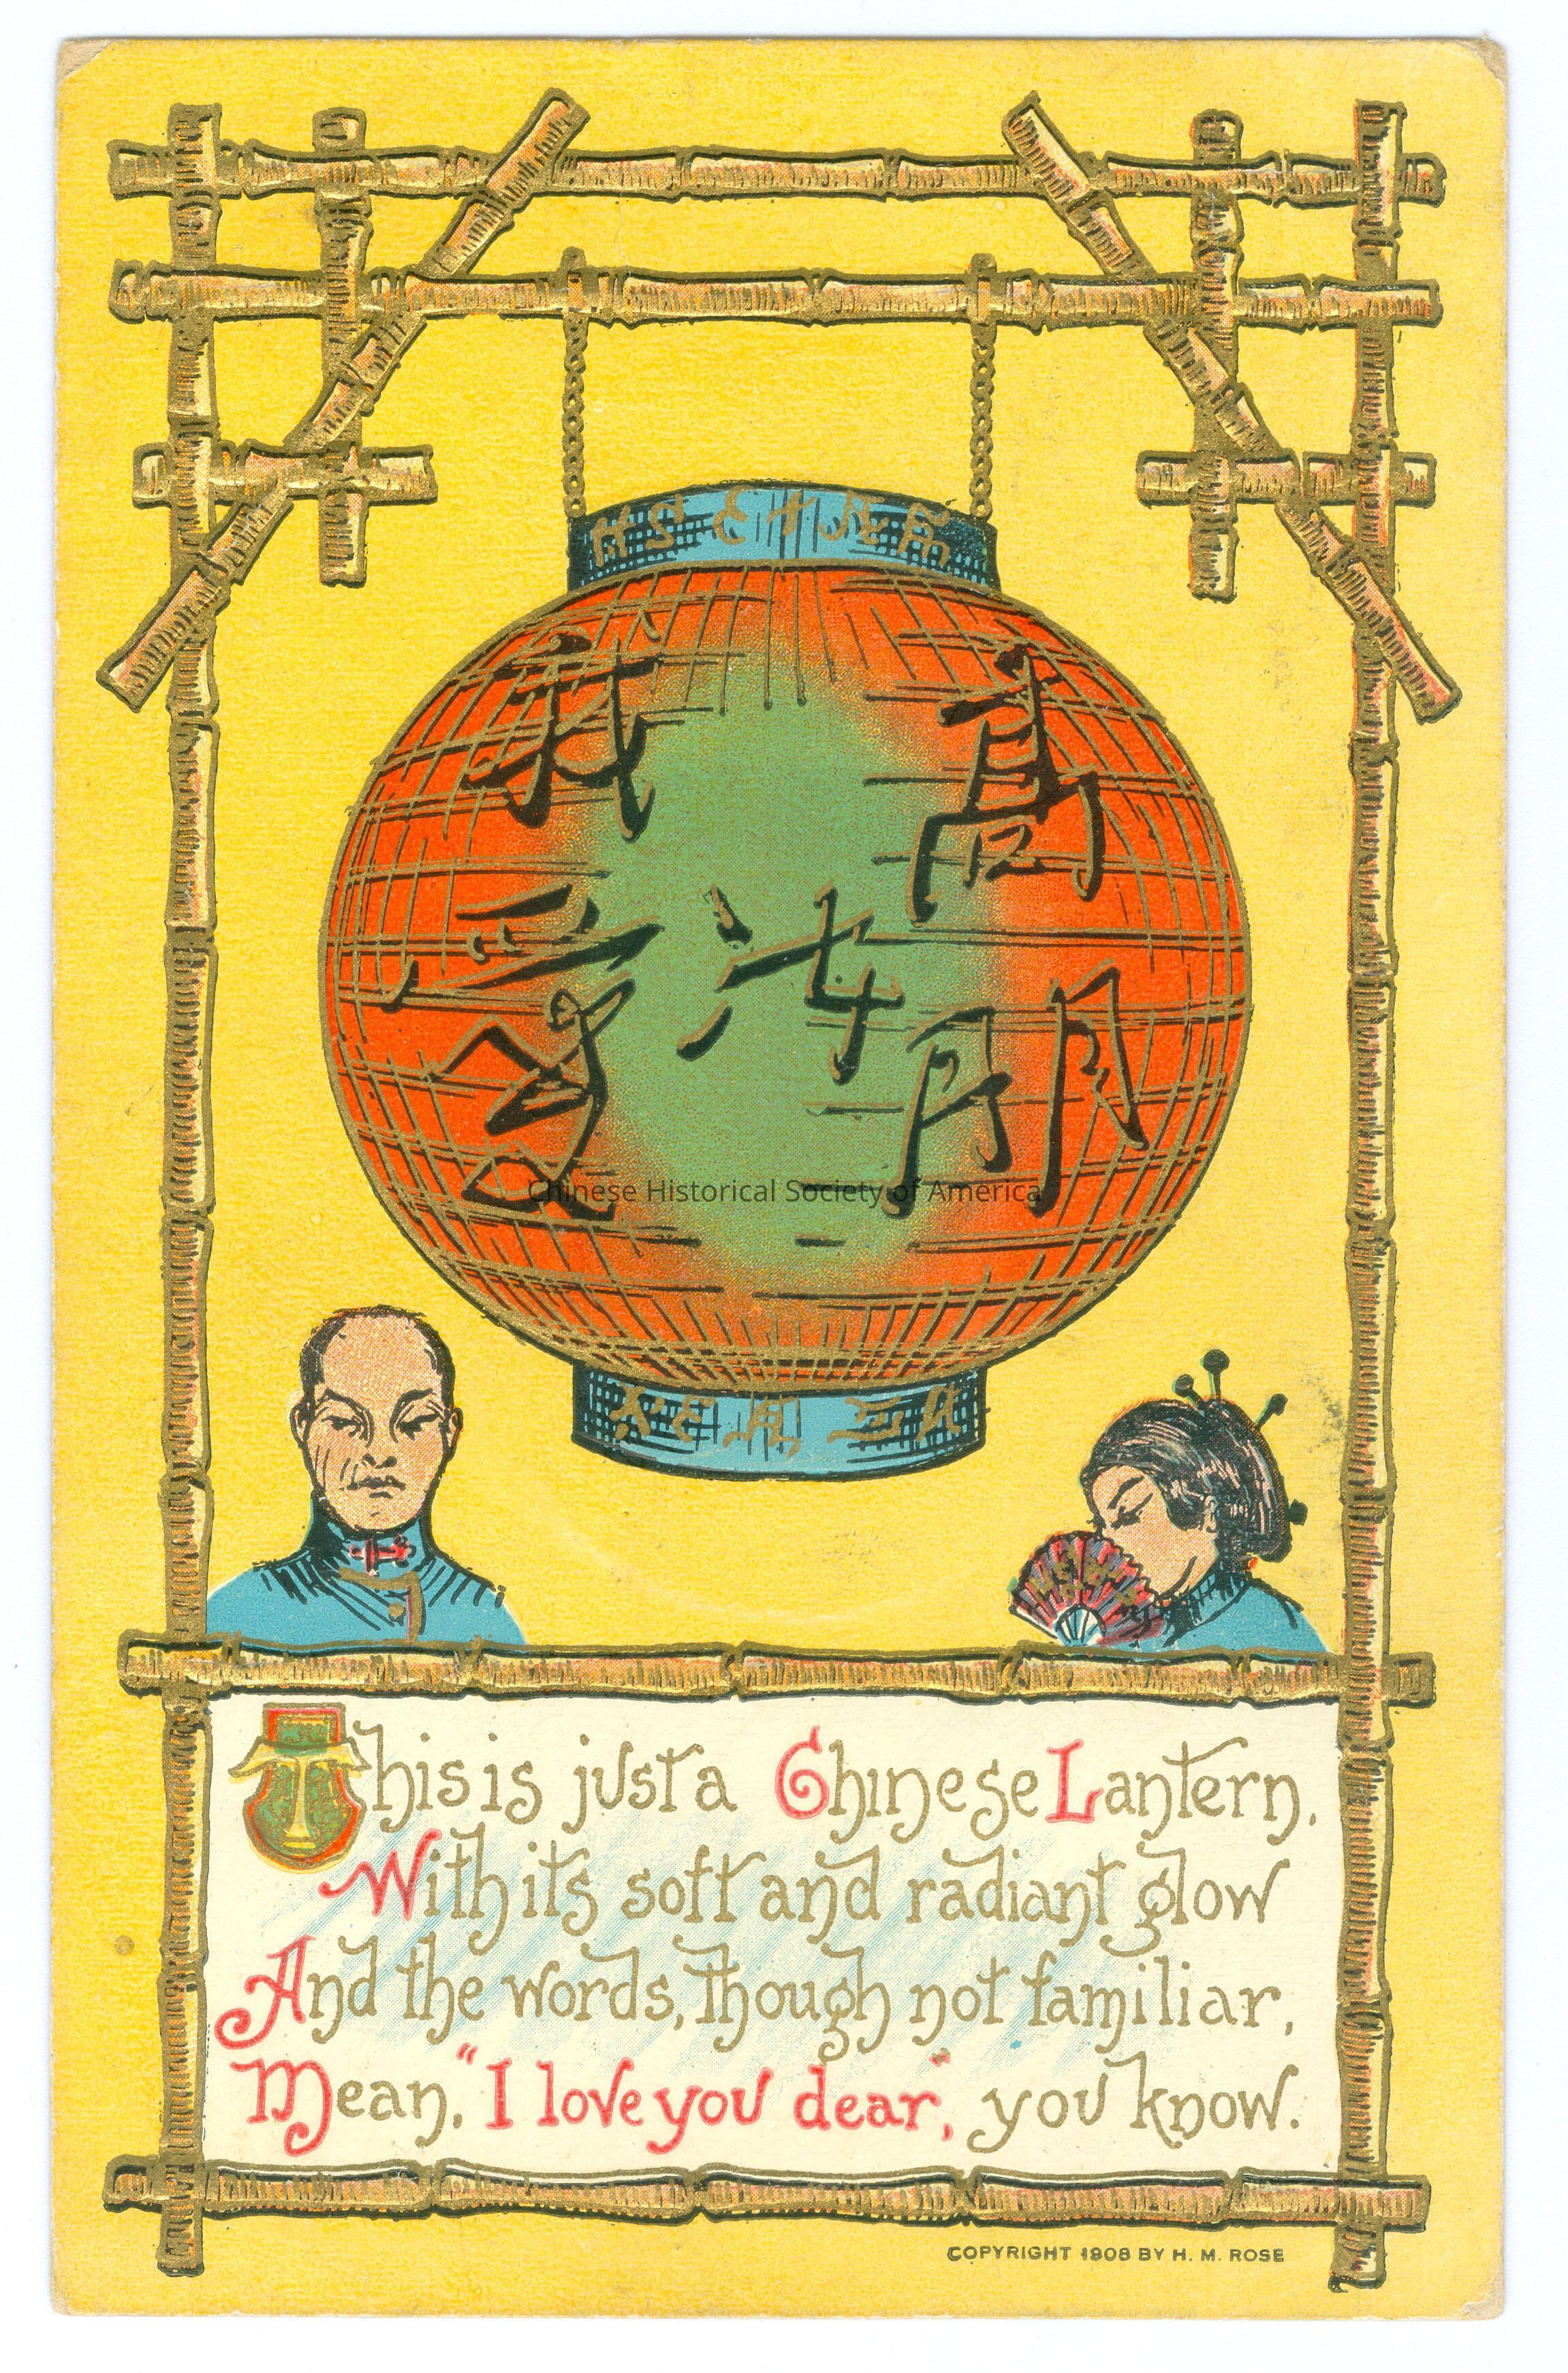 我愛
高朋
Chinese Historical Society of America
This is just a Chinese Lantern,
With its soft and radiant glow
And the words, though not familiar,
Mean, "I love you dear", you know.
COPYRIGHT 1908 BY H. M. ROSE